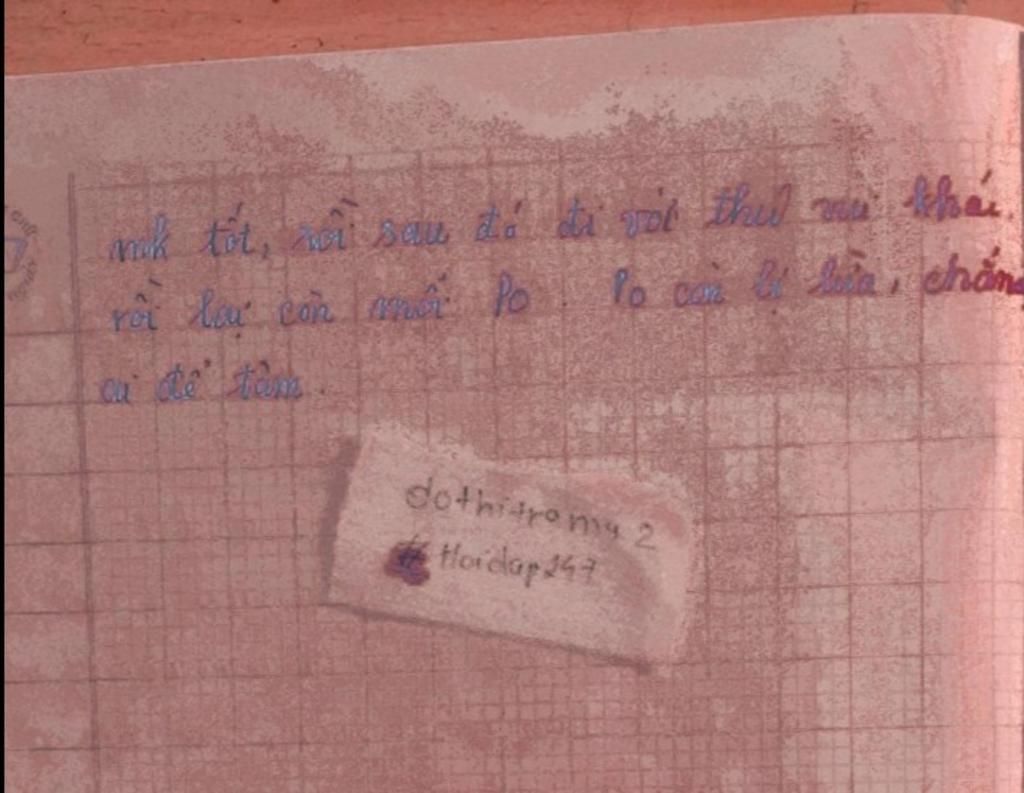 mk tốt, rồi sau đó đi với thú vui khác.
rồi lại còn mối Po. Po còn bị lừa, chẳng
ai để tâm.
dothitramy 2
# Hoidap247